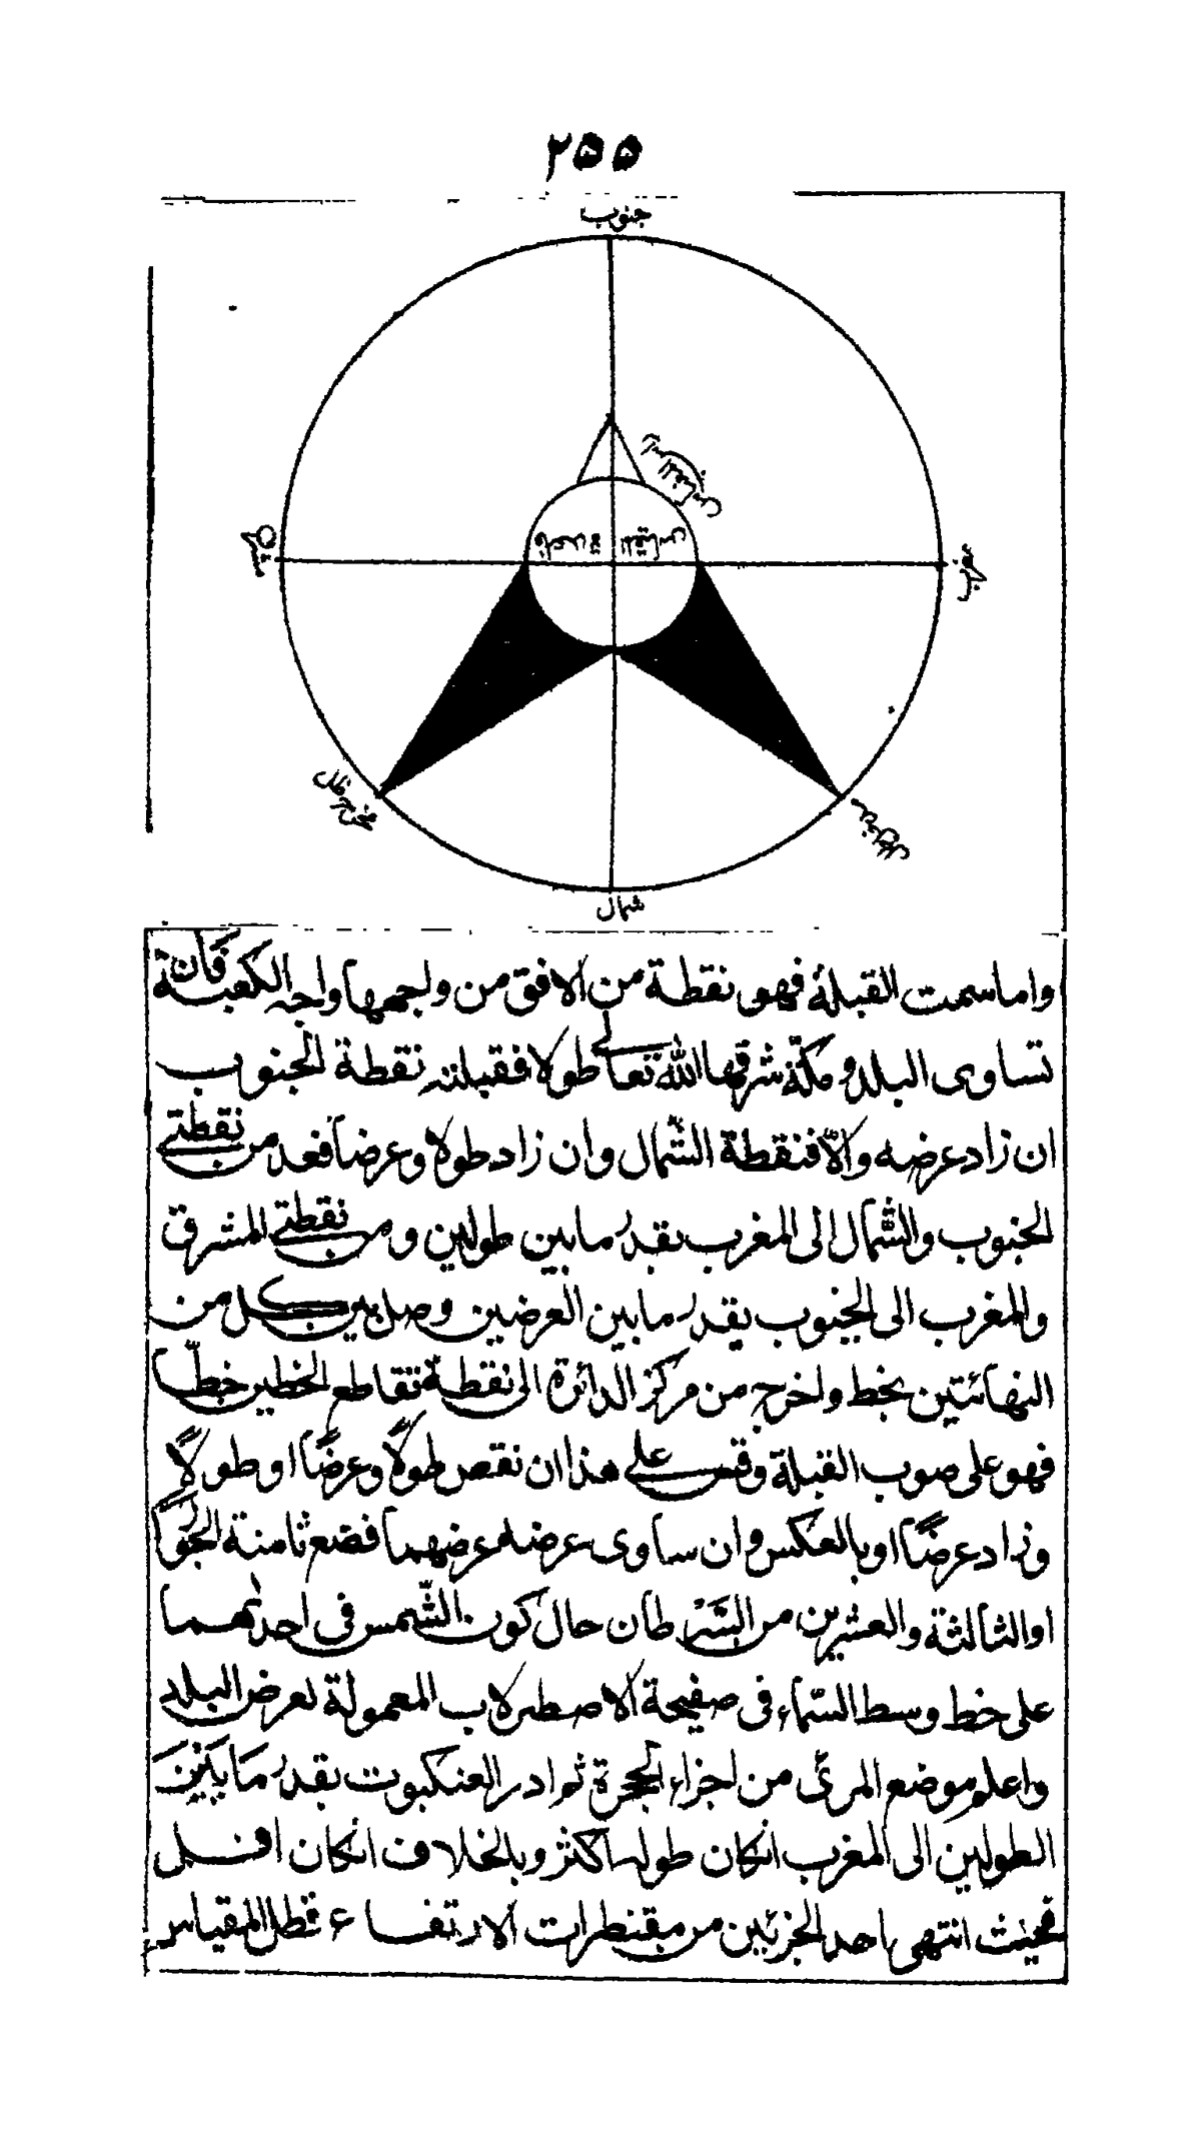 ٢٥٥
جنوب
رأس المقياس
قاعدة المقياس
مشرق
مغرب
مخرج ظل
مدخل ظل
شمال
واما سمت القبلة فهو نقطة من الافق من واجهها واجه الكعبة فان
تساوى البلد و مكّة شرفها الله تعالى طولا فقبلته نقطة الجنوب
ان زاد عرضه والّا فنقطة الشّمال وان زاد طولا وعرضا فعد من نقطتى
الجنوب والشّمال الى المغرب بقدر ما بين طولين و من نقطتى المشرق
والمغرب الى الجنوب بقدر ما بين العرضين وصل بين كل من
النهائتين بخط واخرج من مركز الدائرة الى نقطة تقاطع الخطين خطّا
فهو على صوب القبلة وقس على هذا ان نقص طولًا وعرضًا او طولًا
وزاد عرضًا او بالعكس وان ساوى عرضه عرضهما فضع ثامنة الجوزا
او الثالثة والعشرين من السّرطان حال كون الشّمس فى احدٰهما
على خط وسط السّماء فى صفيحة الاصطرلاب المعمولة لعرض البلد
واعلم موضع المرئ من اجزاء الحجرة ثم ادر العنكبوت بقدر مَا بَيْنَ
الطولين الى المغرب انكان طولها اكثر وبالخلاف انكان اقل
فحيث انتهى احد الجزئين من مقنطرات الارتفاع فظل المقياس